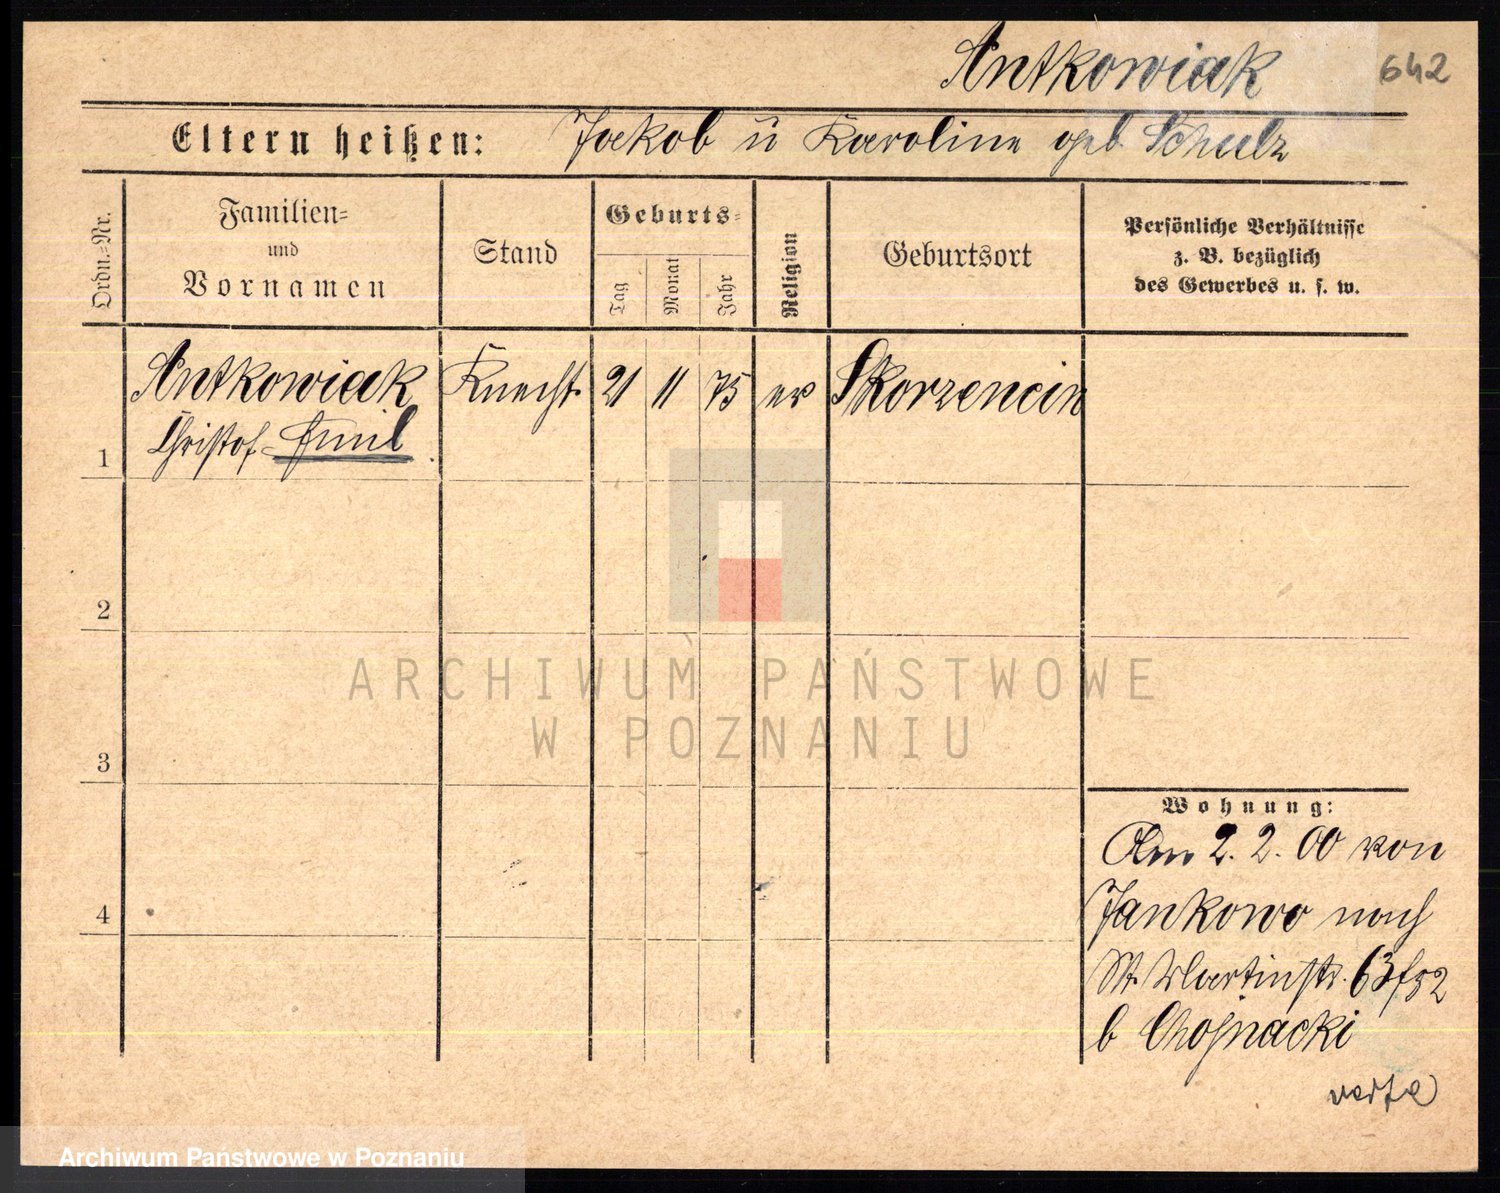 Antkowiak 642
Eltern heißen: Jakob u Karoline geb Schulz
Ordn.-Nr.
Familien-
und
Vornamen
Stand
Geburts-
Tag
Monat
Jahr
Religion
Geburtsort
Persönliche Verhältnisse
z. B. bezüglich
des Gewerbes u. s. w.
Antkowiak Knecht 21 11 75 ev Skorzencin
1 Christof Emil
2
3
4
ARCHIWUM PAŃSTWOWE
W POZNANIU
Wohnung:
Am 2. 2. 00 von
Jankowo nach
St Martinstr. 63
b Chojnacki
Archiwum Państwowe w Poznaniu